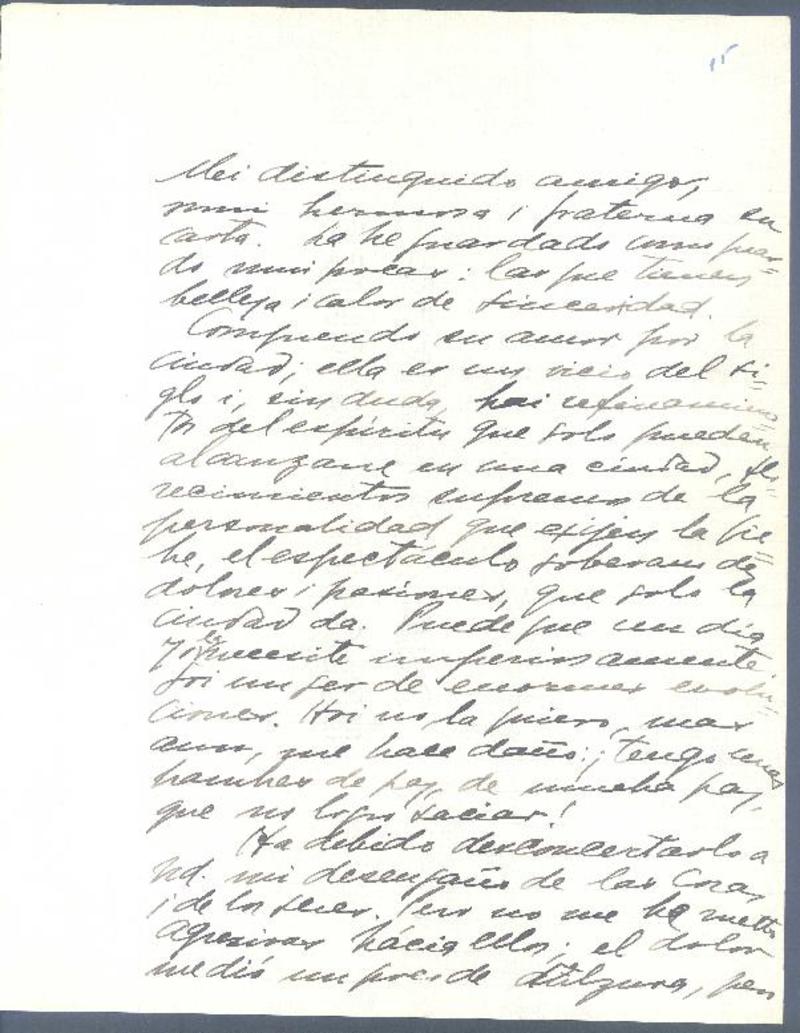 15
Mi distinguido amigo,
mui hermosa i fraterna su
carta. La he guardado como guar=
do mui pocas: las que tienen
belleza i calor de sinceridad.
Comprendo su amor por la
ciudad; ella es un vicio del si=
glo i, sin duda, hai refinamien=
tos del espíritu que solo pueden
alcanzarse en una ciudad, flo=
recimientos supremos de la
personalidad que exijen la fie=
bre, el espectáculo soberano de
dolores i pasiones, que solo la
ciudad da. Puede que un día
yo la necesite imperiosamente
soi un ser de enormes evolu=
ciones. Hoi no la quiero, mas
aun, me hace daño: ¡tengo unas
hambres de paz, de mucha paz,
que no logro saciar!
Ha debido desconcertarlo a
Ud. mi desengaño de las cosas
i de los seres. Pero no me he vuelto
agresiva hácia ellos; el dolor
me dió un poco de dulzura, pero